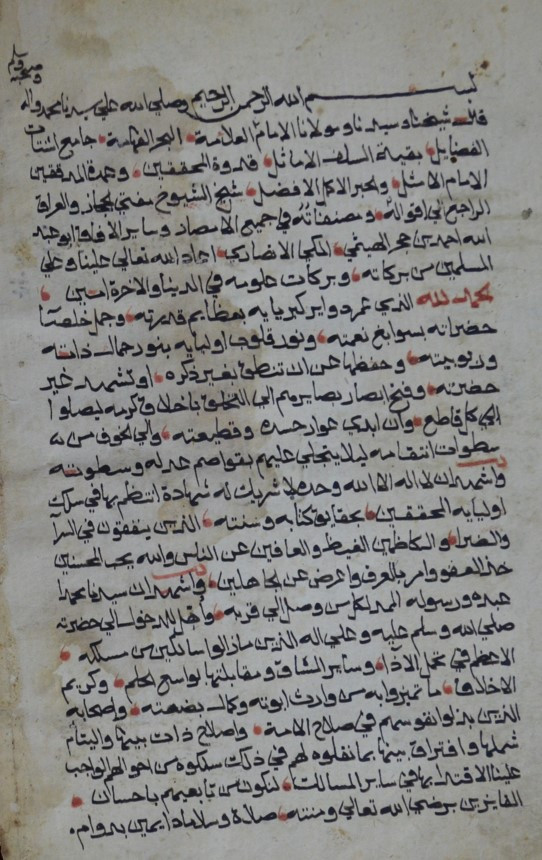 وصحبه وسلم
بسم الله الرحمن الرحيم وصلي الله علي سيدنا محمد واله
قال شيخنا وسيدنا ومولانا الامام العلامة البحر الفهامة جامع اشتات
الفضايل بقية السلف الاماثل قدوة المحققين وعمدة المدققين
الامام الامثل والحبر الاكمل الافضل شيخ الشيوخ مفتي الحجاز والعراق
الراجع الي اقواله ومصنفاته في جميع الامصار وساير الافاق ابو عبد
الله احمد بن حجر الهيثمي المكي الانصاري اعاد الله تعالي علينا وعلي
المسلمين من بركاته وبركات علومه في الدنيا والاخرة امين
الحمد لله الذي غمر دواير كبريايه بعظايم قدرته وجمل خلصآ
حضراته بسوابغ نعمته ونور قلوب اوليايه بنور جمال ذاته
وديمومته وحفظها عن ان تنطق بغير ذكره او تشهد غير
حضرته وفتح ابصار بصايرهم الي التخلق باخلاق كرمه ليصلوا
الي كل قاطع وان ابدي عوار حسده وقطيعته والي الخوف من
سطوات انتقامه ليلا يتجلي عليهم بقواصم عدله وسطوته
واشهد ان لا اله الا الله وحده لا شريك له شهادة انتظم بها في سلك
اوليايه المحققين بحقايق كتابه وسنته الذين ينفقون في السرا
والضرا والكاظمين الغيظ والعافين عن الناس والله يحب المحسنين
خذ العفو وامر بالعرف واعرض عن الجاهلين واشهد ان سيدنا محمدا
عبده ورسوله الممد لكل من وصل الي قربه واهل للدخول الي حضرته
صلي الله وسلم عليه وعلي اله الذين ما زالوا سالكين من مسلكه
الاعظم في تحمل الاذا وساير المشاق ومقابلتها بواسع الحلم وكريم
الاخلاق ما تميزوا به من وارث ابوته وكمال بضعته واصحابه
الذين بذلوا نفوسهم في صلاح الامة واصلاح ذات بينها والتيام
شملها وافتراق بينها بما نقلوه لهم في ذلك وسلكوه من احوالهم الواجب
علينا الاقتدا بها في ساير المسالك لنكون من تابعيهم باحسان
الفايزين برضي الله تعالي ومنته صلاة وسلاما دايمين بدوام